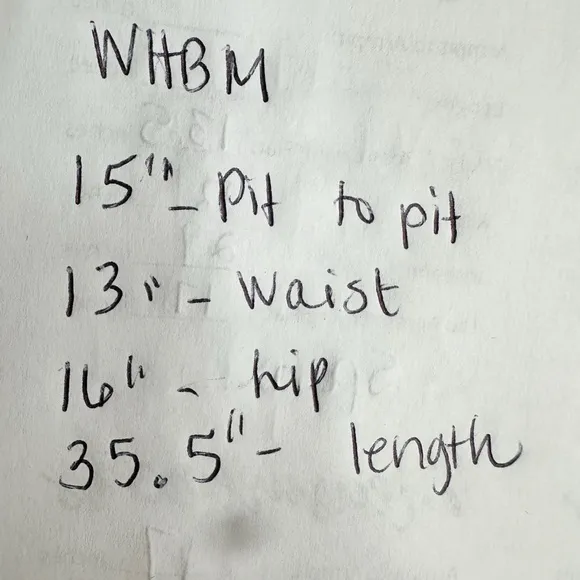 WHBM
15" - pit to pit
13" - waist
16" - hip
35.5" - length